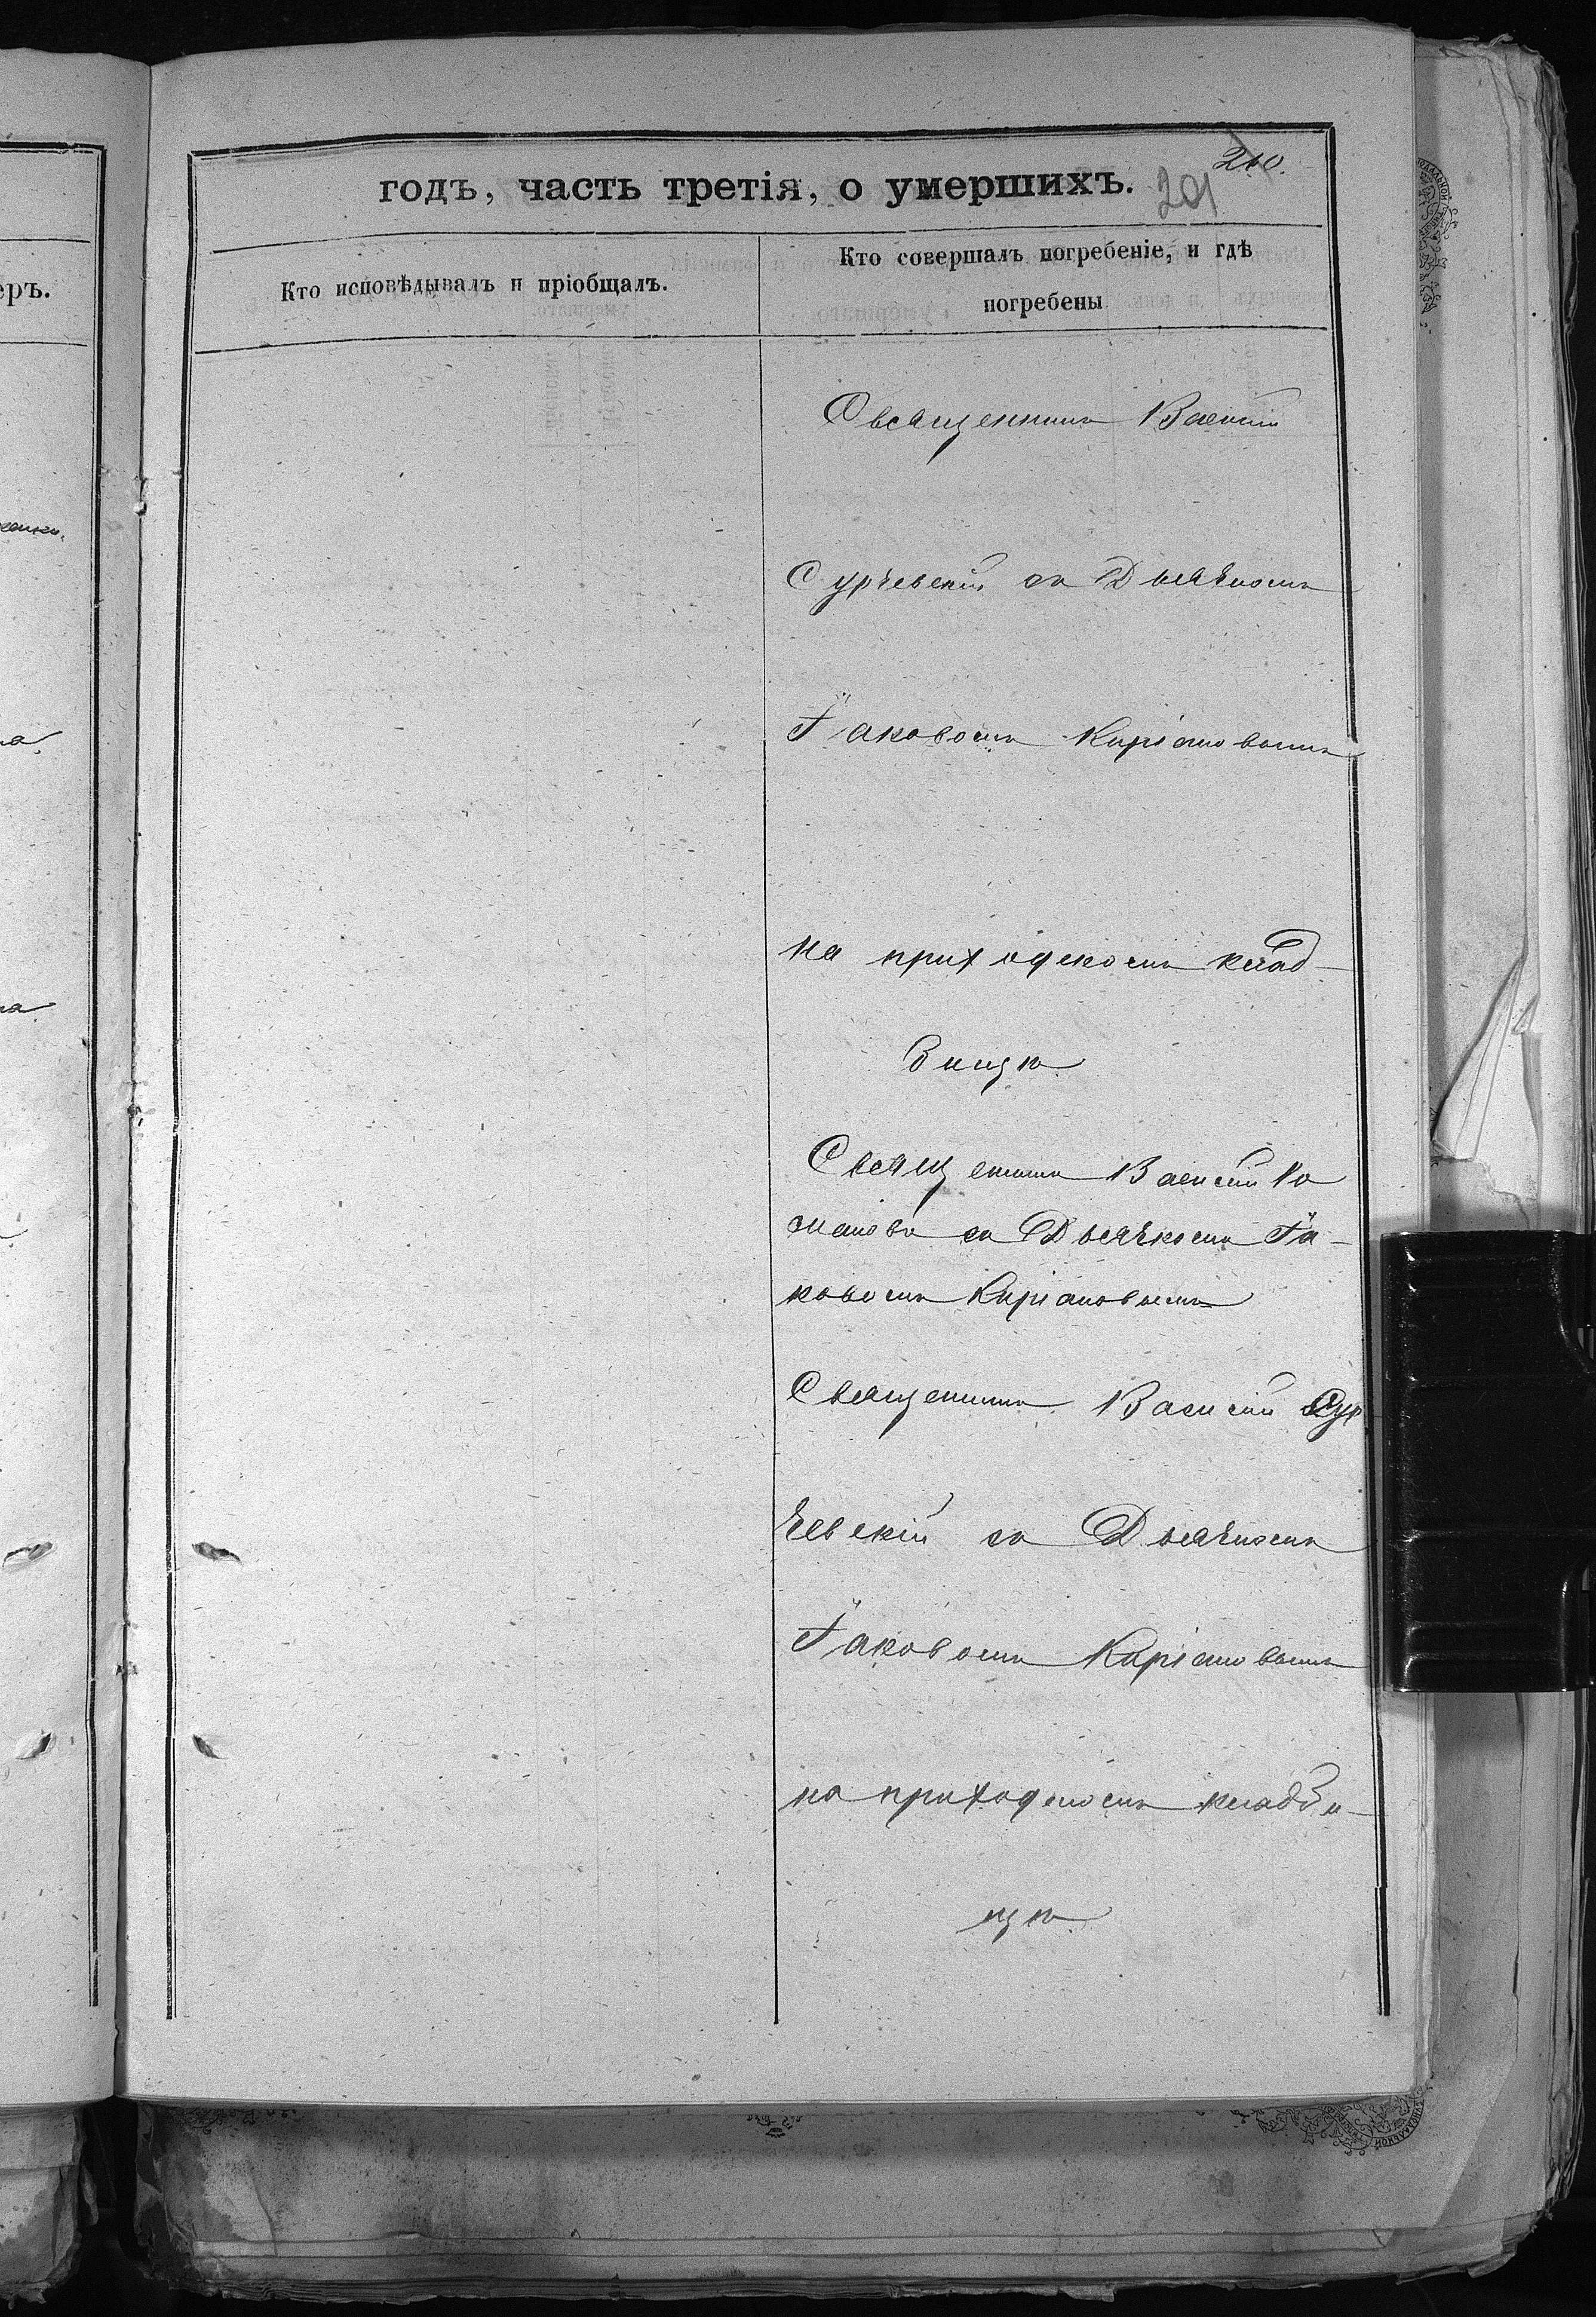 210.
годъ, часть третія, о умершихъ. 201
Кто исповѣдывалъ и пріобщалъ.
Кто совершалъ погребеніе, и гдѣ
погребены
еръ.
Священникъ Василій
Сурчевскій съ Дьячкомъ
Іаковомъ Киріановымъ
на приходскомъ клад-
бищѣ
Священникъ Василій Ро
мановъ съ Дьячкомъ Іа-
ковомъ Киріановымъ
Священникъ Василій Сур
чевскій съ Дьячкомъ
Іаковомъ Киріановымъ
на приходскомъ кладби-
щѣ